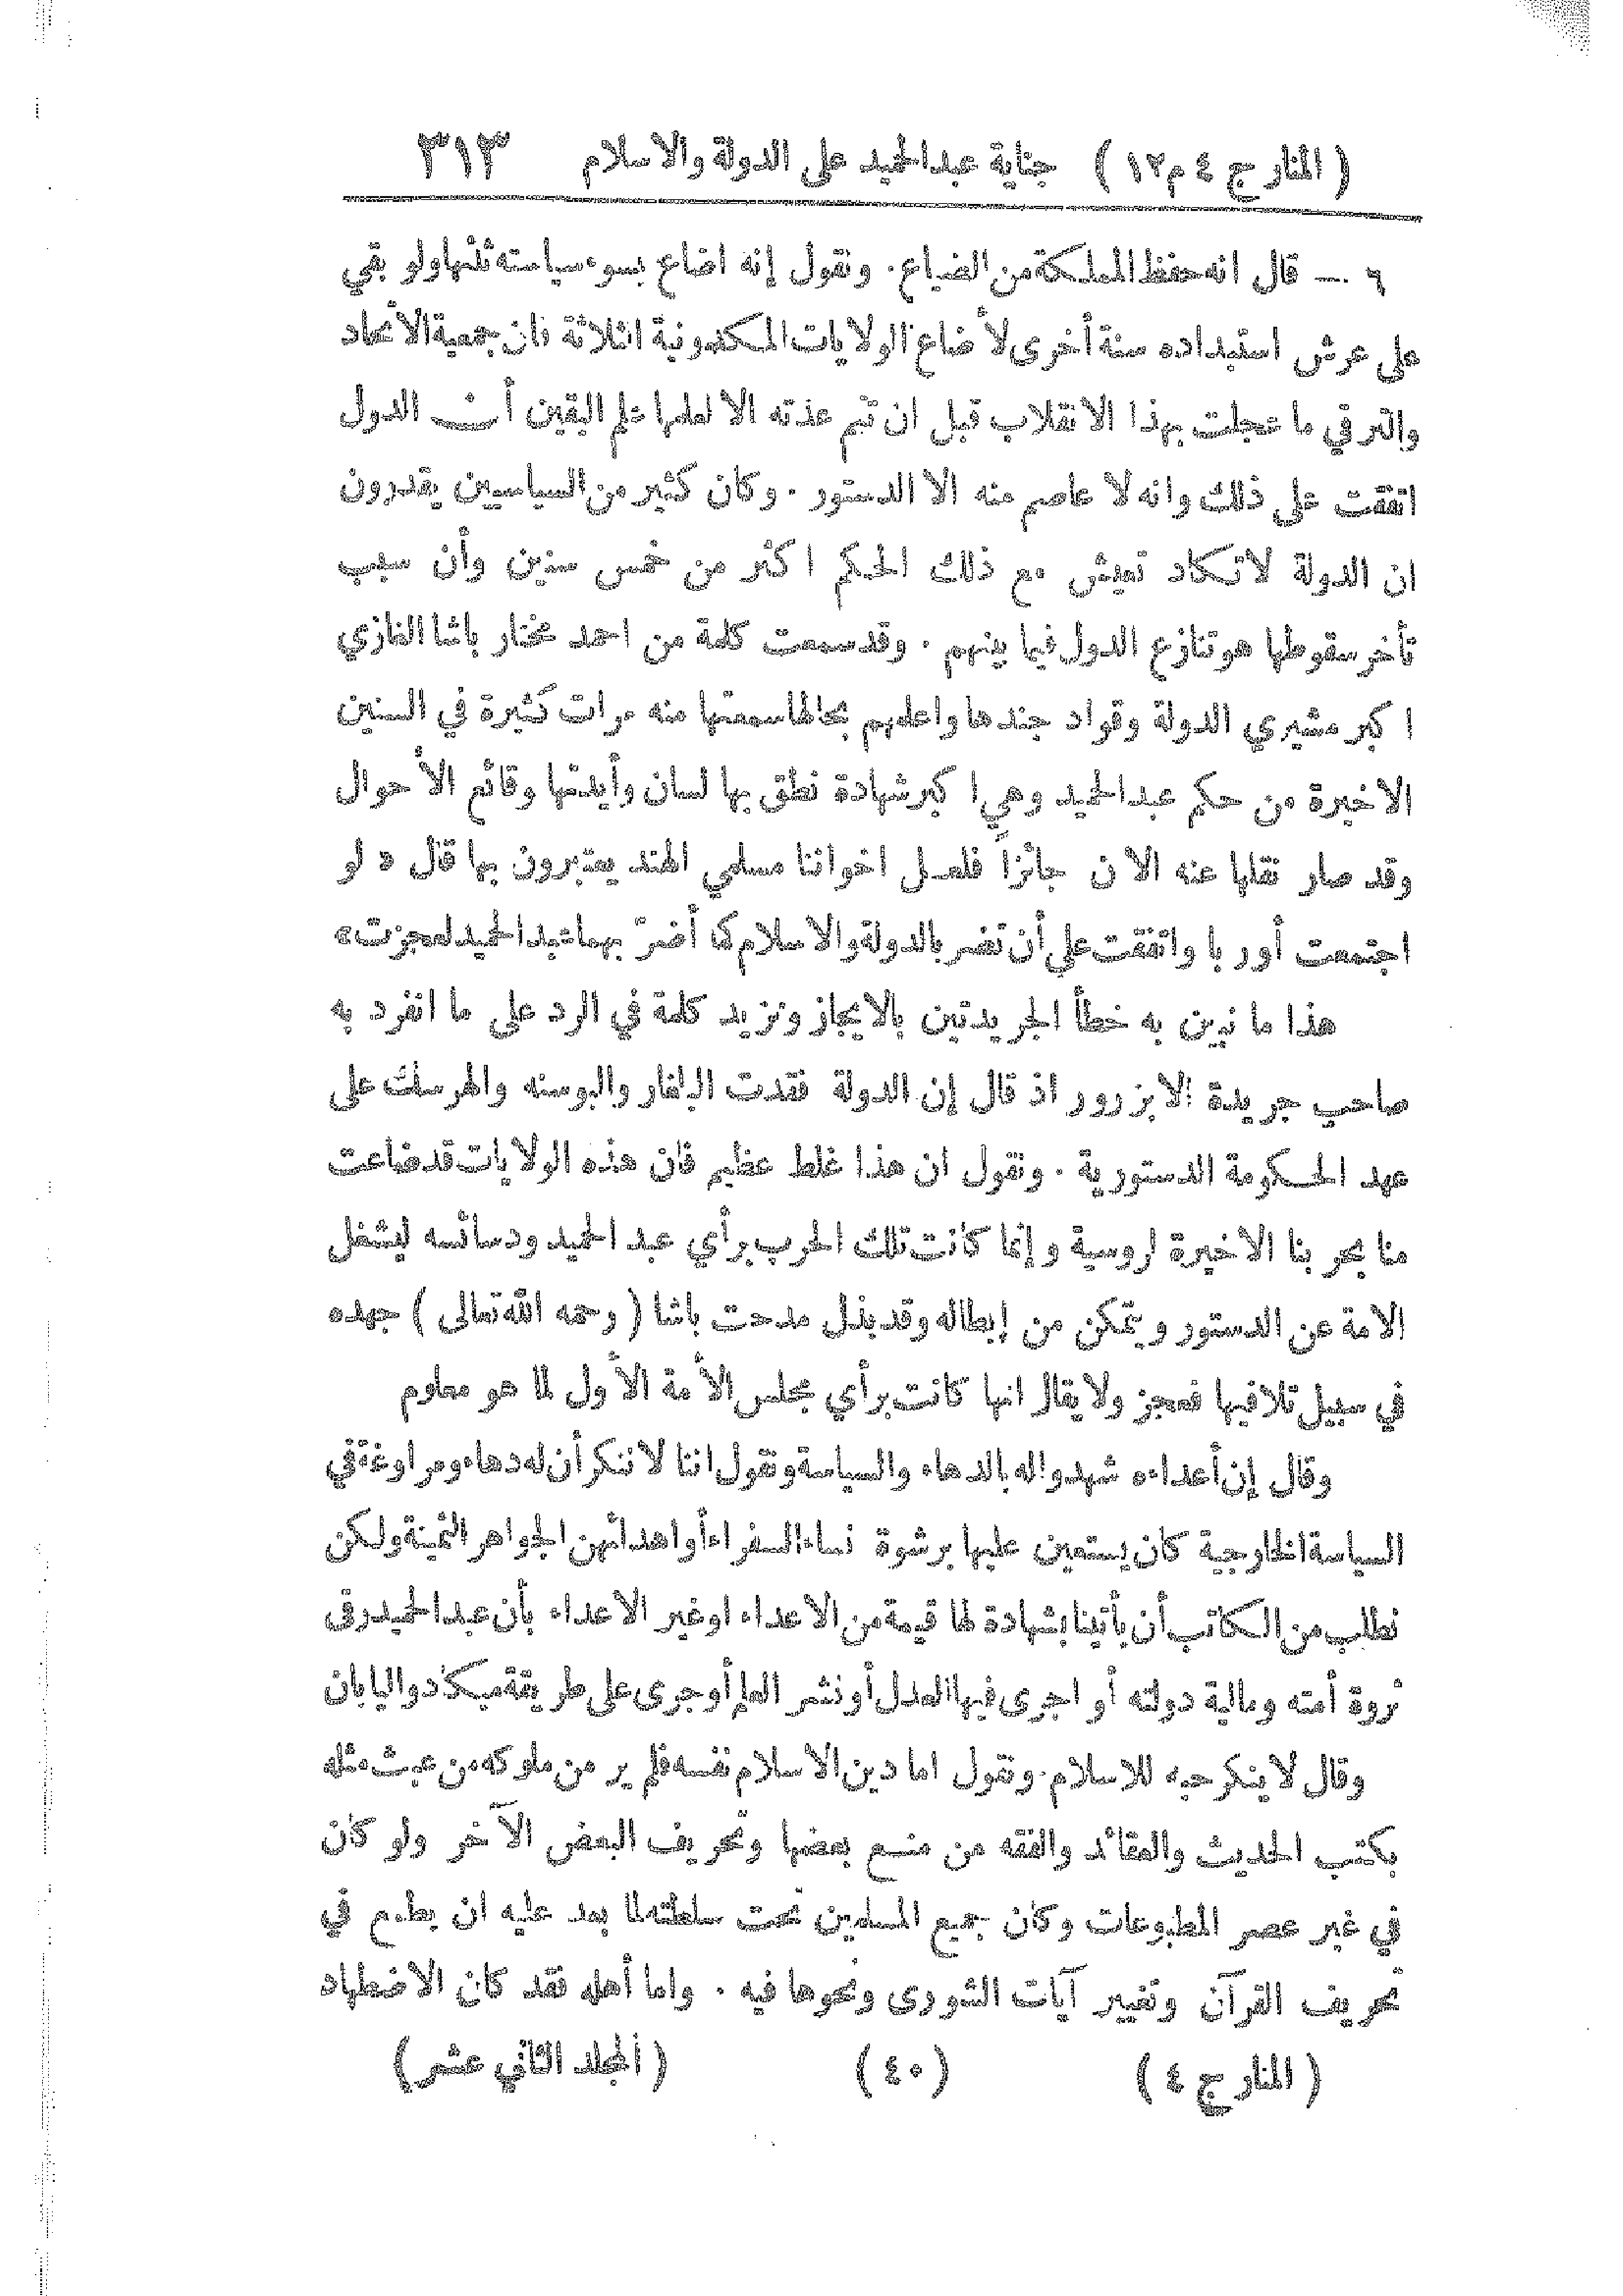 ( المنار ج ٤ م ١٢ ) جناية عبدالحميد على الدولة والاسلام ٣١٣
٦ — قال انه حفظ المملكة من الضياع . ونقول إنه اضاع بسوء سياسته ثلثها ولو بقي
على عرش استبداده سنة أخرى لأضاع الولايات المكدونية الثلاثة فان جمعية الاتحاد
والترقي ما عجلت بهذا الانقلاب قبل ان تتم عدته الا لعلمها علم اليقين أن الدول
اتفقت على ذلك وانه لا عاصم منه الا الدستور . وكان كثير من السياسيين يقدرون
ان الدولة لا تكاد تعيش مع ذلك الحكم اكثر من خمس سنين وأن سبب
تأخر سقوطها هو تنازع الدول فيما بينهم . وقد سمعت كلمة من احمد مختار باشا الغازي
اكبر مشيري الدولة وقواد جندها واعلمهم بحالها سمعتها منه مرات كثيرة في السنين
الاخيرة من حكم عبدالحميد وهي اكبر شهادة نطق بها لسان وأيدتها وقائع الأحوال
وقد صار نقلها عنه الان جائزاً فلعل اخواننا مسلمي الهند يعتبرون بها قال « لو
اجتمعت أوربا واتفقت على أن تضر بالدولة والاسلام كما أضرّ بهما عبدالحميد لعجزت »
هذا ما نبين به خطأ الجريدتين بالايجاز ونزيد كلمة في الرد على ما انفرد به
صاحب جريدة الابزرور اذ قال إن الدولة فقدت البلغار والبوسنه والهرسك على
عهد الحكومة الدستورية . ونقول ان هذا غلط عظيم فان هذه الولايات قد ضاعت
منا بحربنا الاخيرة لروسية وإنما كانت تلك الحرب برأي عبد الحميد ودسائسه ليشغل
الامة عن الدستور ويتمكن من إبطاله وقد بذل مدحت باشا ( رحمه الله تعالى ) جهده
في سبيل تلافيها فعجز ولا يقال انها كانت برأي مجلس الأمة الأول لما هو معلوم
وقال إن أعداءه شهدوا له بالدهاء والسياسة ونقول اننا لا ننكر أن له دهاء ومراوغة في
السياسة الخارجية كان يستعين عليها برشوة نساء السفراء أو اهدائهن الجواهر الثمينة ولكن
نطلب من الكاتب أن يأتينا بشهادة لها قيمة من الاعداء او غير الاعداء بأن عبدالحميد رقى
ثروة أمته ومالية دولته أو اجرى فيها العدل أو نشر العلم أو جرى على طريقة ميكادو اليابان
وقال لا ينكر حبه للاسلام . ونقول اما دين الاسلام نفسه فلم ير من ملوكه من عبث مثله
بكتب الحديث والعقائد والفقه من منع بعضها وتحريف البعض الآخر ولو كان
في غير عصر المطبوعات وكان جميع المسلمين تحت سلطته لما بعد عليه ان يطمع في
تحريف القرآن وتغيير آيات الشورى ونحوها فيه . واما أهله فقد كان الاضطهاد
( المنار ج ٤ ) ( ٤٠ ) ( المجلد الثاني عشر )